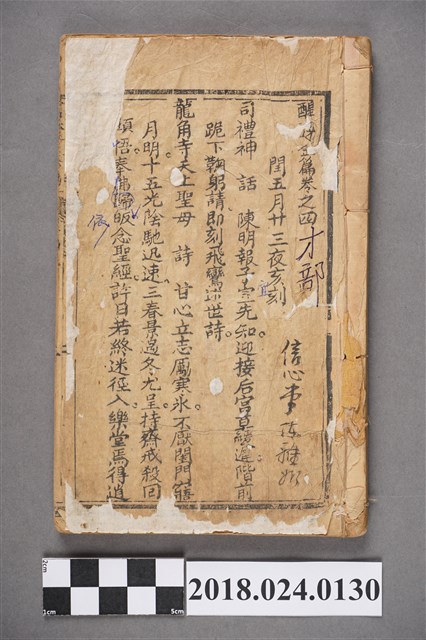 醒 篇卷之四 才部
閏五月廿三夜亥刻
信心 陳
司禮神 話 陳明報子 先知迎接后宮 邊階前
跪下鞠躬請即刻飛鸞 世詩
龍角寺天上聖母 詩 甘心立志厲寒氷不厭閨門
月明十五光陰馳迅速三春景過冬尤呈持齋戒殺回
頭悟奉佛歸皈念聖經許日若終迷徑入樂堂焉得道
依
2018.024.0130
2cm
1cm
5cm